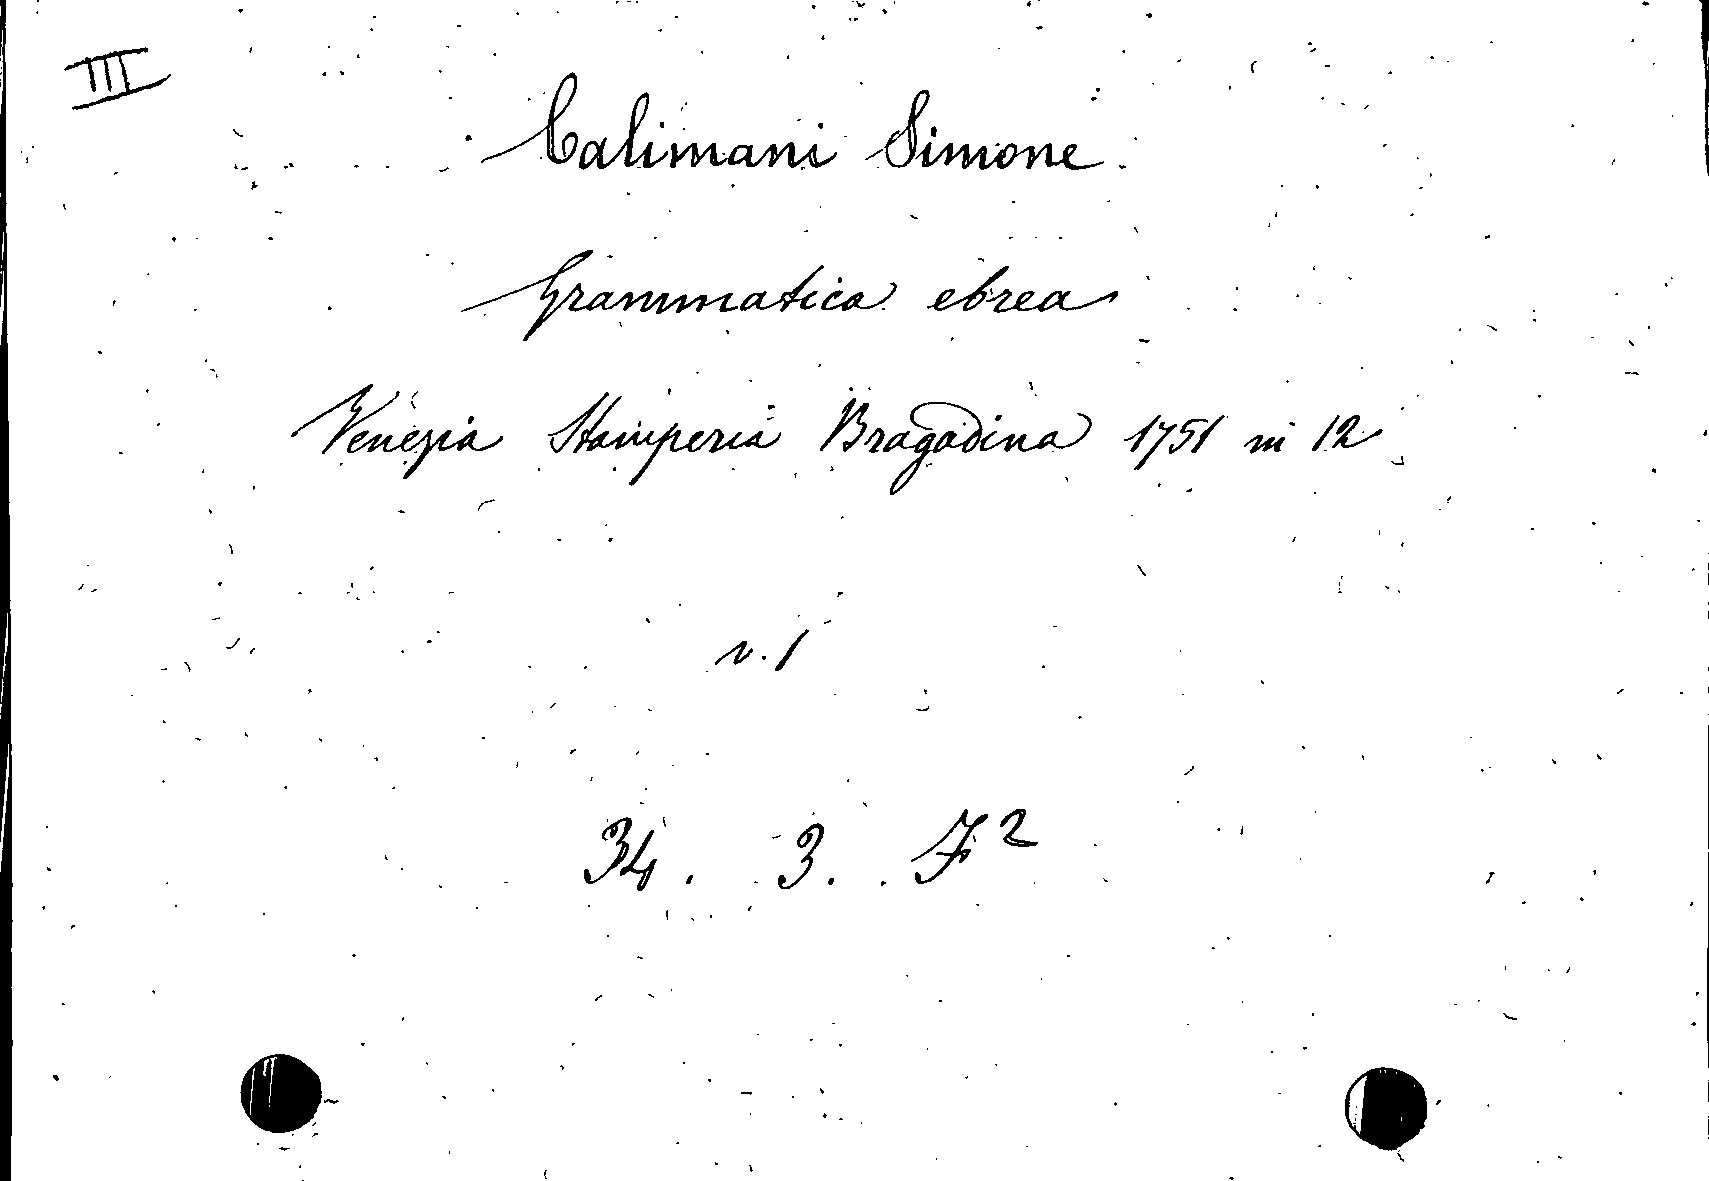 III
Calimani Simone
Grammatica ebrea
Venezia Stamperia Bragadina 1751 in 12
v. 1
34. 3. F²